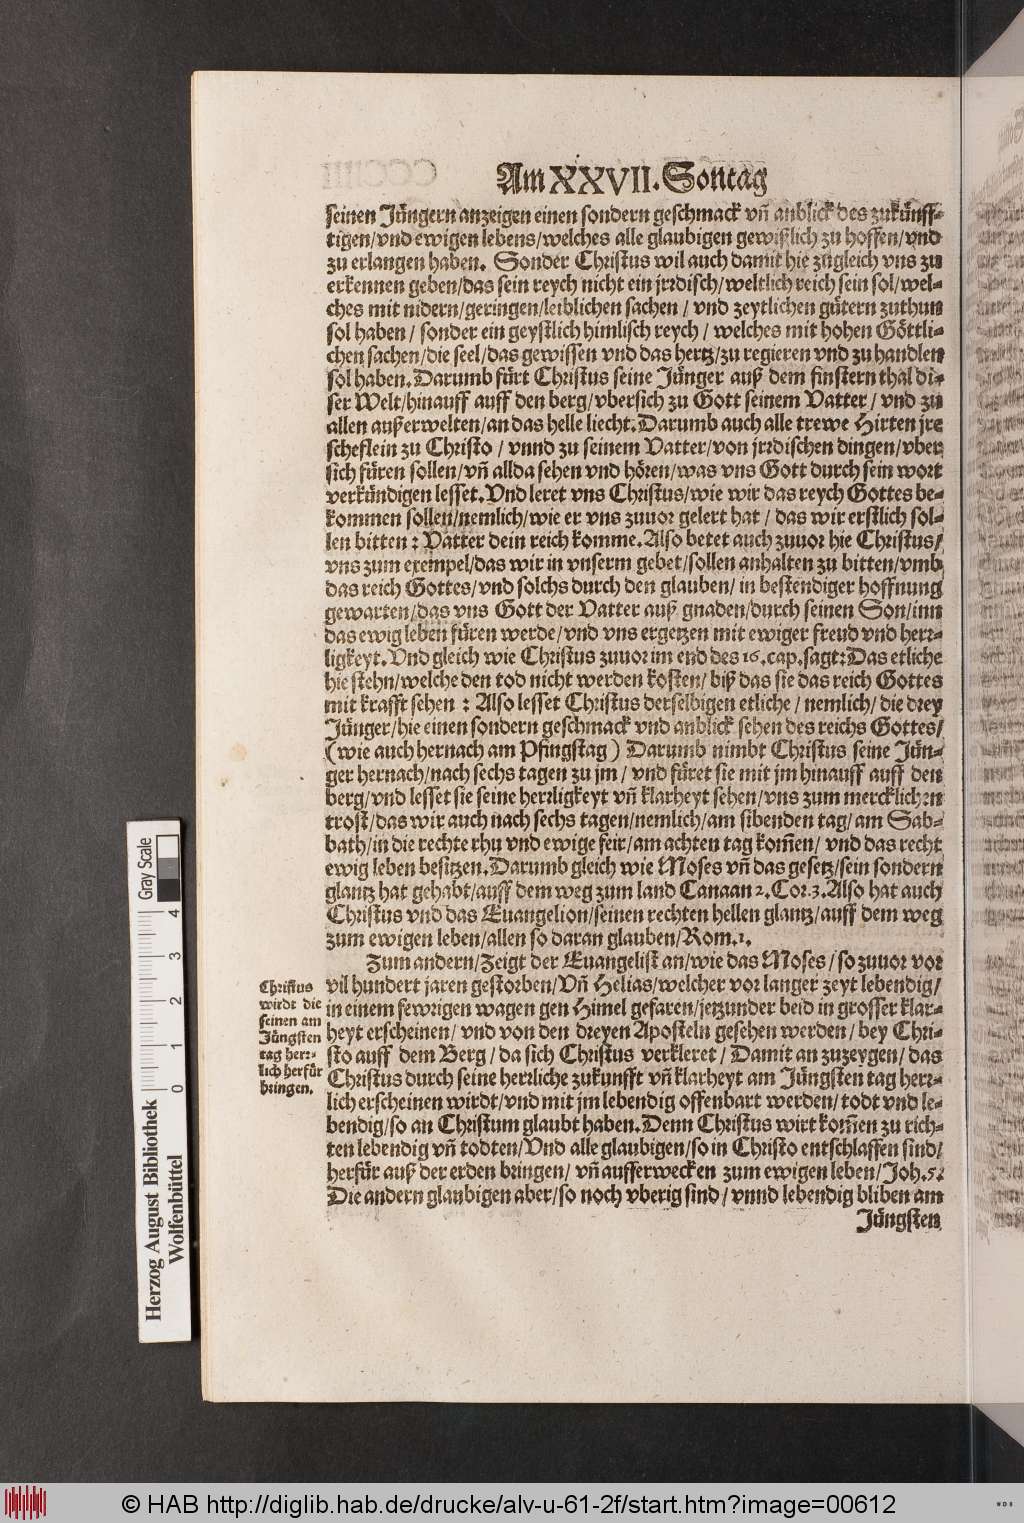 Am XXVII. Sontag
seinen Jüngern anzeigen einen sondern geschmack vn̄ anblick des zukünff-
tigen/vnd ewigen lebens/welches alle glaubigen gewißlich zu hoffen/vnd
zu erlangen haben. Sonder Christus wil auch damit hie zugleich vns zu
erkennen geben/das sein reych nicht ein jrrdisch/weltlich reich sein sol/wel-
ches mit nidern/geringen/leiblichen sachen / vnd zeytlichen gütern zuthun
sol haben / sonder ein geystlich himlisch reych / welches mit hohen Göttli-
chen sachen/die seel/das gewissen vnd das hertz/zu regieren vnd zu handlen
sol haben. Darumb fürt Christus seine Jünger auß dem finstern thal di-
ser Welt/hinauff auff den berg/vbersich zu Gott seinem Vatter / vnd zu
allen außerwelten/an das helle liecht. Darumb auch alle trewe Hirten jre
scheflein zu Christo / vnnd zu seinem Vatter/von jrrdischen dingen/vber
sich füren sollen/vn̄ allda sehen vnd hören/was vns Gott durch sein wort
verkündigen lesset. Vnd leret vns Christus/wie wir das reych Gottes be-
kommen sollen/nemlich/wie er vns zuuor gelert hat / das wir erstlich sol-
len bitten : Vatter dein reich komme. Also betet auch zuuor hie Christus/
vns zum exempel/das wir in vnserm gebet/sollen anhalten zu bitten/vmb
das reich Gottes/vnd solchs durch den glauben/ in bestendiger hoffnung
gewarten/das vns Gott der Vatter auß gnaden/durch seinen Son/inn
das ewig leben füren werde/vnd vns ergetzen mit ewiger freud vnd herr-
ligkeyt. Vnd gleich wie Christus zuuor im end des 16. cap. sagt: Das etliche
hie stehn/welche den tod nicht werden kosten/ biß das sie das reich Gottes
mit krafft sehen : Also lesset Christus derselbigen etliche / nemlich/ die drey
Jünger/hie einen sondern geschmack vnd anblick sehen des reichs Gottes/
(wie auch hernach am Pfingstag) Darumb nimbt Christus seine Jün-
ger hernach/nach sechs tagen zu jm / vnd füret sie mit jm hinauff auff den
berg/vnd lesset sie seine herrligkeyt vn̄ klarheyt sehen/vns zum mercklichen
trost/das wir auch nach sechs tagen/nemlich/am sibenden tag/am Sab-
bath/in die rechte rhu vnd ewige feir/am achten tag kom̄en/ vnd das recht
ewig leben besitzen. Darumb gleich wie Moses vn̄ das gesetz/sein sondern
glantz hat gehabt/auff dem weg zum land Canaan 2. Cor. 3. Also hat auch
Christus vnd das Euangelion/seinen rechten hellen glantz/auff dem weg
zum ewigen leben/allen so daran glauben/Rom. 1.
Zum andern/Zeigt der Euangelist an/wie das Moses / so zuuor vor
vil hundert jaren gestorben/Vn̄ Helias/welcher vor langer zeyt lebendig/
in einem fewrigen wagen gen Himel gefaren/jetzunder beid in grosser klar-
heyt erscheinen/ vnd von den dreyen Aposteln gesehen werden / bey Chri-
sto auff dem Berg / da sich Christus verkleret / Damit an zuzeygen/ das
Christus durch seine herrliche zukunfft vn̄ klarheyt am Jüngsten tag herr-
lich erscheinen wirdt/vnd mit jm lebendig offenbart werden/ todt vnd le-
bendig/so an Christum glaubt haben. Denn Christus wirt kom̄en zu rich-
ten lebendig vn̄ todten/Vnd alle glaubigen/so in Christo entschlaffen sind/
herfür auß der erden bringen/ vn̄ aufferwecken zum ewigen leben/Joh. 5.
Die andern glaubigen aber/so noch vberig sind / vnnd lebendig bliben am
Jüngsten
Christus
wirdt die
seinen am
Jüngsten
tag herr-
lich herfür
bringen.
Gray Scale
0 1 2 3 4
Herzog August Bibliothek
Wolfenbüttel
© HAB http://diglib.hab.de/drucke/alv-u-61-2f/start.htm?image=00612